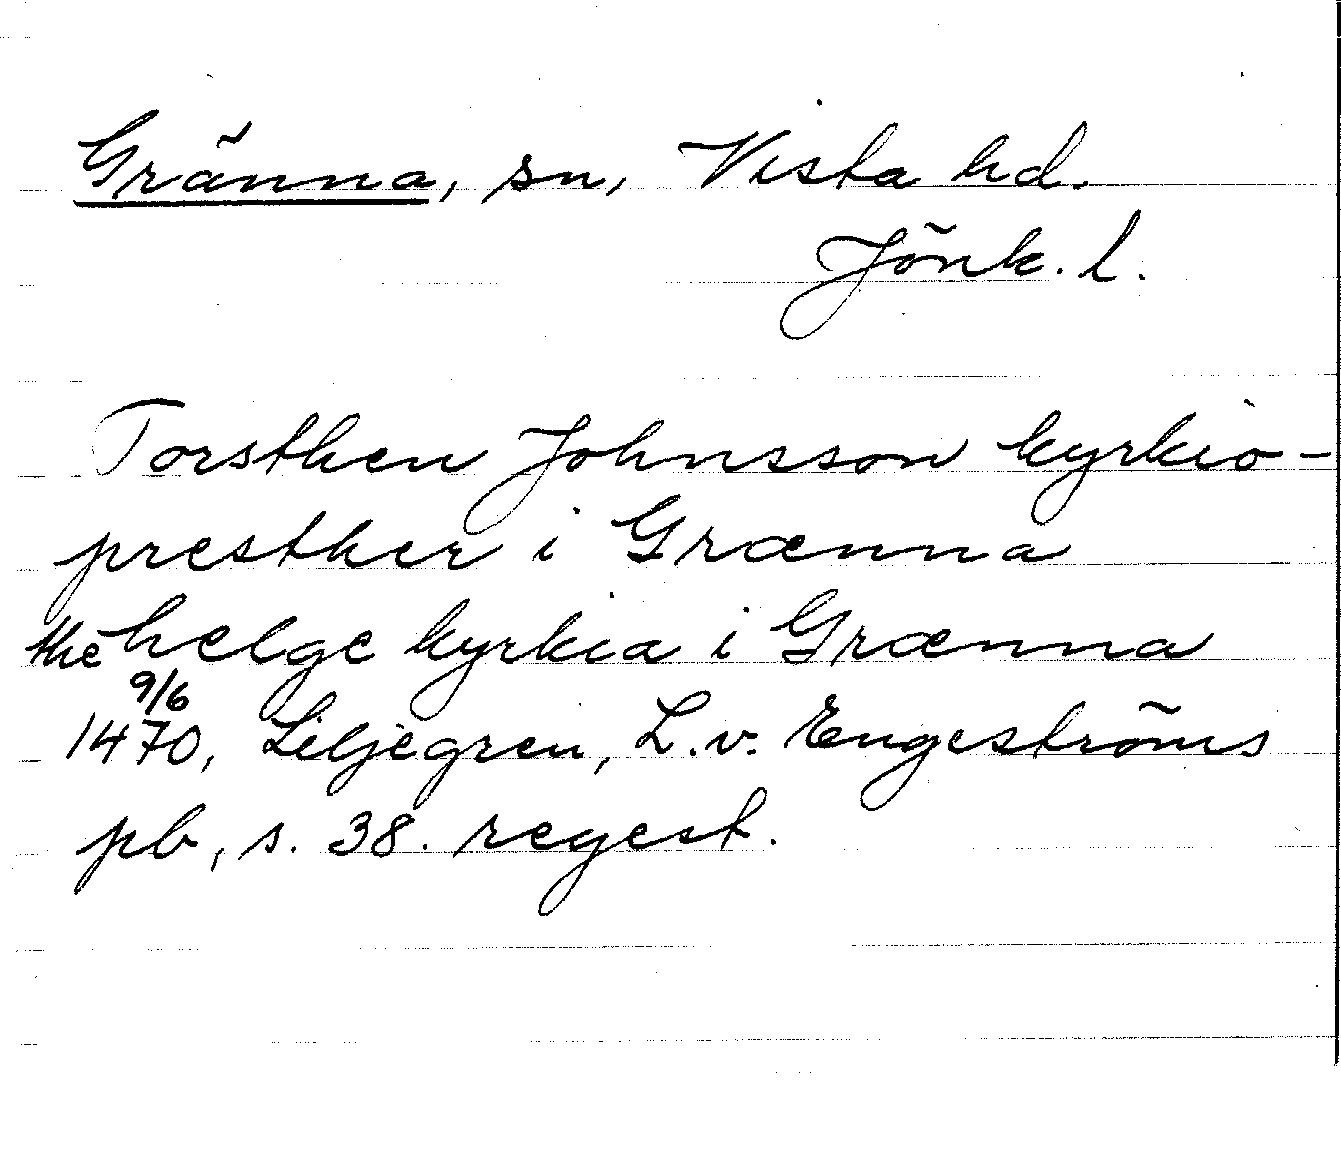 Gränna, sn, Vista hd.
Jönk. l.
Torsthen Johnsson kyrkio-
presther i Grænna
the helge kyrkia i Grænna
9/6
1470, Liljegren, L.v. Engeströms
pb, s. 38. regest.